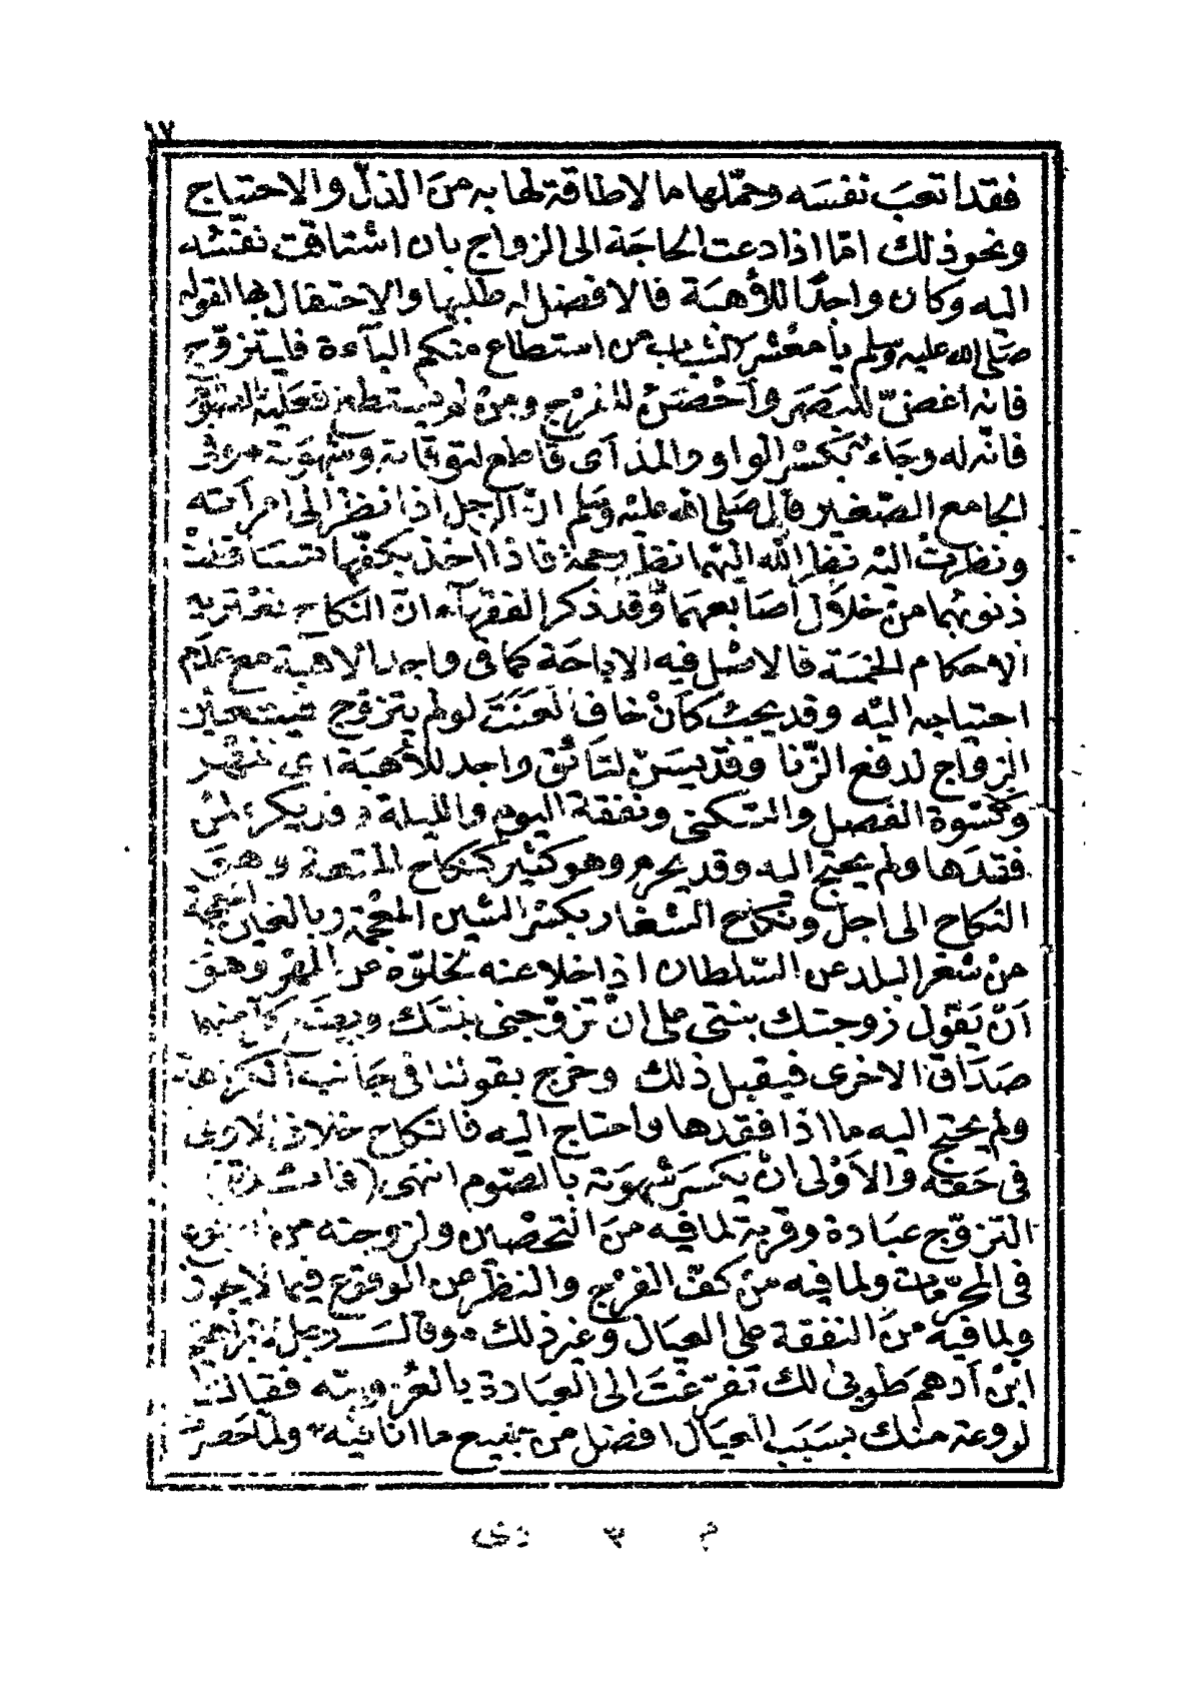 ١٧
فقد اتعب نفسه وحمّلها ما لا طاقة لها به من الذلّ والاحتياج
ونحو ذلك امّا اذا دعت الحاجة الى الزواج بان اشتاقت نفسه
اليه وكان واجدًا للأهبة فالافضل له طلبها والاحتفال بها لقوله
صلى الله عليه وسلم يا معشر الشباب من استطاع منكم البآءة فليتزوّج
فانه اغضّ للبصر وأحْصَنُ للفرج ومن لم يستطع فعليه بالصوم
فانّه له وجاءٌ بكسر الواو والمدّ أى قاطع لتوقانه وشهوته وفى
الجامع الصّغير قال صلى الله عليه وسلم انّ الرجل اذا نظر الى امرأته
ونظرت اليه نظر الله اليهما نظر رحمة فاذا أخذ بكفّها تساقطت
ذنوبهما من خلال أصابعهما وقد ذكر الفقهآء انّ النكاح تعتريه
الاحكام الخمسة فالاصل فيه الاباحة كما فى واجد الاهبة مع عدم
احتياجه اليه وقد يجب كأن خاف العَنَتَ لو لم يتزوّج فيتعين
الزواج لدفع الزّنا وقد يسنّ لتائق واجد للأهبة اى مَهْر
وكسْوة الفصل والسّكنى ونفقة اليوم والليلة وقد يكره لمن
فقدها ولم يحتج اليه وقد يحرم وهو كثير كنكاح المتعة وهو
النكاح الى اجل ونكاح الشغار بكسر الشين المعجمة وبالغين المعجمة
من شغر البلد عن السّلطان اذا خلا عنه لخلوّه عن المهر وهو
أنْ يقول زوجتك بنتى على انْ تزوّجنى بنتك وبضع كلّ منهما
صداق الاخرى فيقبل ذلك وخرج بقولنا فى جانب الكراهة
ولم يحتج اليه ما اذا فقدها واحتاج اليه فالنكاح خلاف الاولى
فى حقه والاَوْلى انْ يكسر شهوته بالصّوم انتهى (فائدة)
التزوّج عبادة وقربة لما فيه من التحصين له ولزوجته من الوقوع
فى المحرّمات ولما فيه من كفّ الفرج والنظر عن الوقوع فيما لا يجوز
ولما فيه من النفقة على العيال وغير ذلك وقالَ رجل لابراهيم
ابن أدهم طوبى لك تفرّغت الى العبادة بالعُزوبة فقال
لروعة منك بسبب العيال افضل من جميع ما انا فيه ولمّا حضر